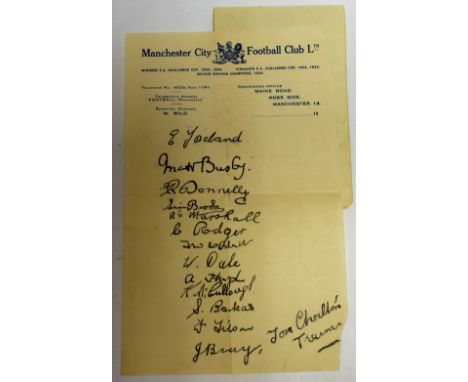 Manchester City Football Club Ltd
WINNERS F.A. CHALLENGE CUP, 1904, 1934. FINALISTS F.A. CHALLENGE CUP, 1926, 1933.
SECOND DIVISION CHAMPIONS, 1928.
TELEPHONE No. MOSs Side 1191.
TELEGRAPHIC ADDRESS
"FOOTBALL, MANCHESTER"
SECRETARY MANAGER
W. WILD.
REGISTERED OFFICE
MAINE ROAD
MOSS SIDE,
MANCHESTER 14.
19
E Toseland
Matt Busby.
R Donnelly
Eric Brook
R S Marshall
C Rodger
W. Dale
A Herd
K McCullough
S. Barkas
F Tilson
J Bray,
Tom Chorlton
Trainer